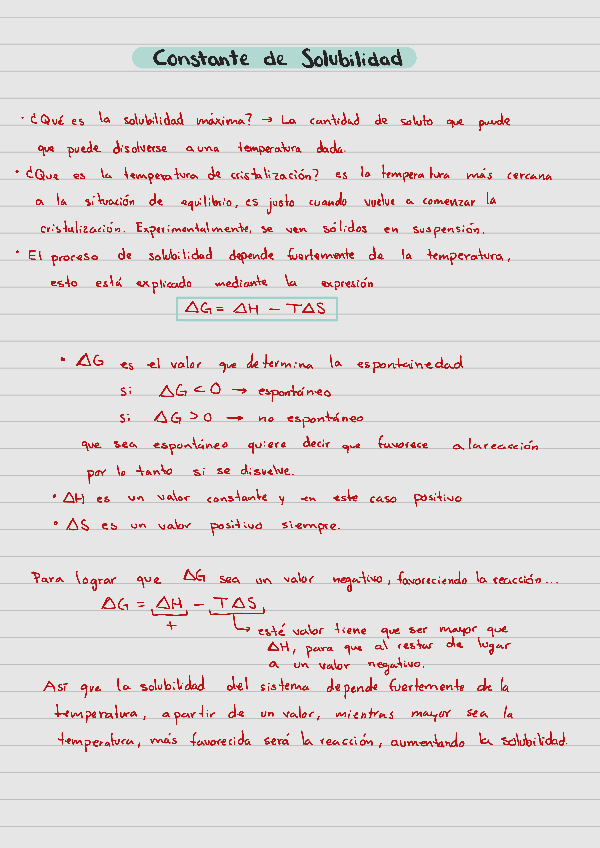 Constante de Solubilidad
· ¿Qué es la solubilidad máxima? → La cantidad de soluto que puede
que puede disolverse a una temperatura dada.
· ¿Que es la temperatura de cristalización? es la temperatura más cercana
a la situación de equilibrio, es justo cuando vuelve a comenzar la
cristalización. Experimentalmente, se ven sólidos en suspensión.
· El proceso de solubilidad depende fuertemente de la temperatura,
esto está explicado mediante la expresión
ΔG = ΔH - TΔS
· ΔG es el valor que determina la espontainedad
si ΔG < 0 → espontáneo
si ΔG > 0 → no espontáneo
que sea espontáneo quiere decir que favorece a la reacción
por lo tanto si se disuelve.
· ΔH es un valor constante y en este caso positivo
· ΔS es un valor positivo siempre.
Para lograr que ΔG sea un valor negativo, favoreciendo la reacción...
ΔG = ΔH - TΔS
+
→ esté valor tiene que ser mayor que
ΔH, para que al restar de lugar
a un valor negativo.
Así que la solubilidad del sistema depende fuertemente de la
temperatura, a partir de un valor, mientras mayor sea la
temperatura, más favorecida será la reacción, aumentando la solubilidad.